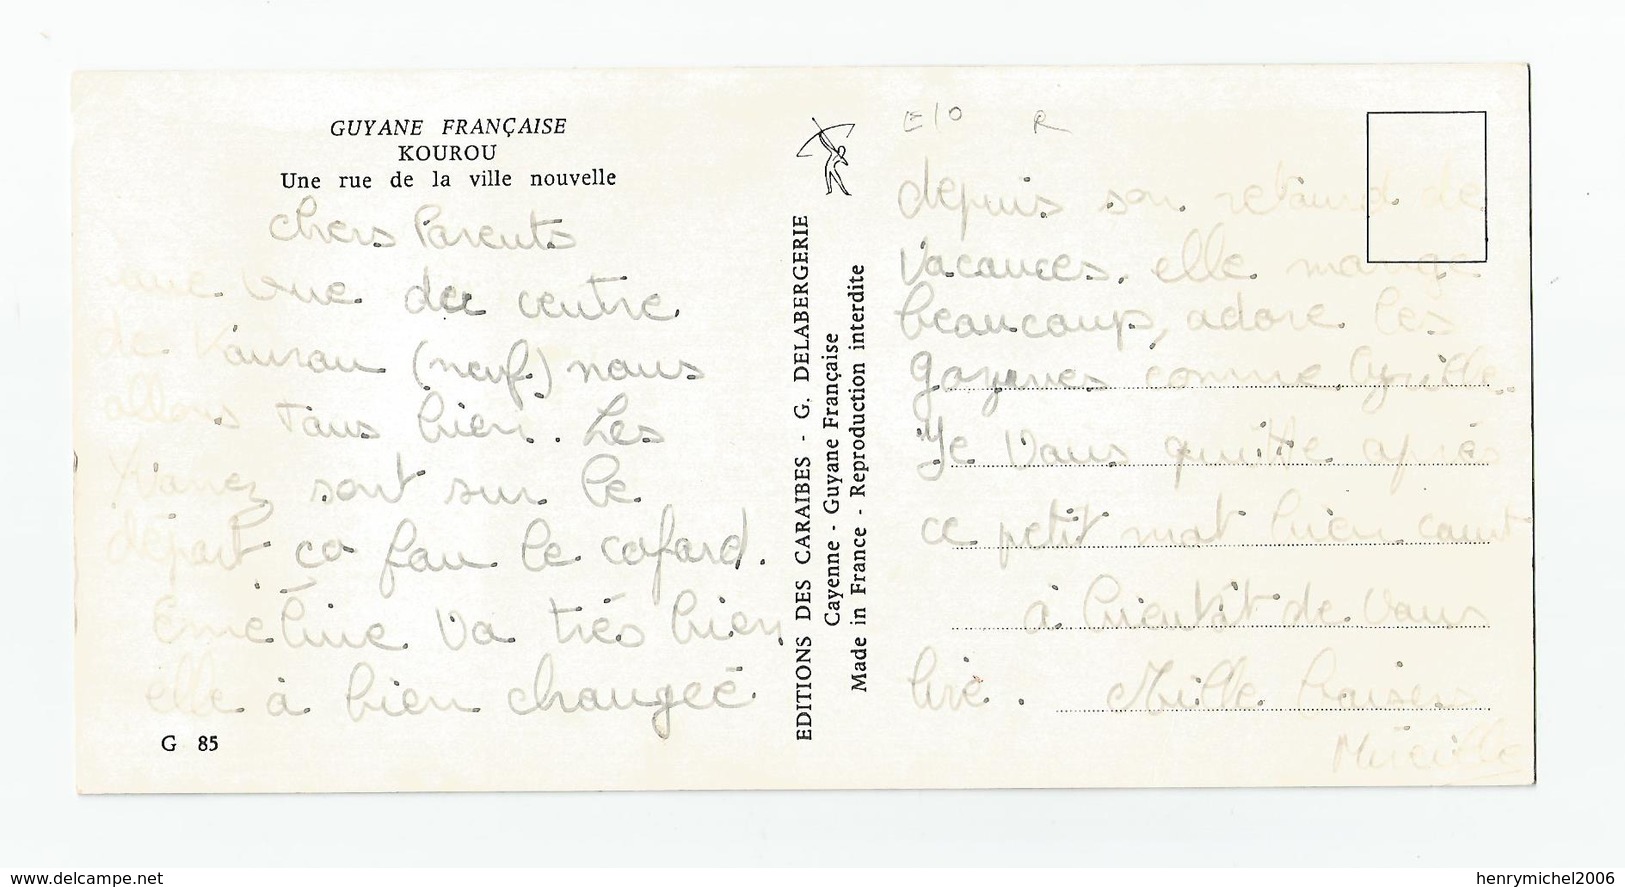 GUYANE FRANÇAISE
KOUROU
Une rue de la ville nouvelle
Chers Parents
une vue du centre
de Kourou (neuf) nous
allons tous bien. Les
sont sur le
départ ça fou le cafard.
Eméline va très bien,
elle à bien changée
G 85
EDITIONS DES CARAIBES - G. DELABERGERIE
Cayenne - Guyane Française
Made in France - Reproduction interdite
E10 R
depuis son retourd de
vacances. elle mange
beaucoup, adore les
goyaves comme Cyrille.
Je vous quitte après
ce petit mot bien court
à bientôt de vous
lire. Mille baisers
Mireille
delcampe.net
henrymichel2006